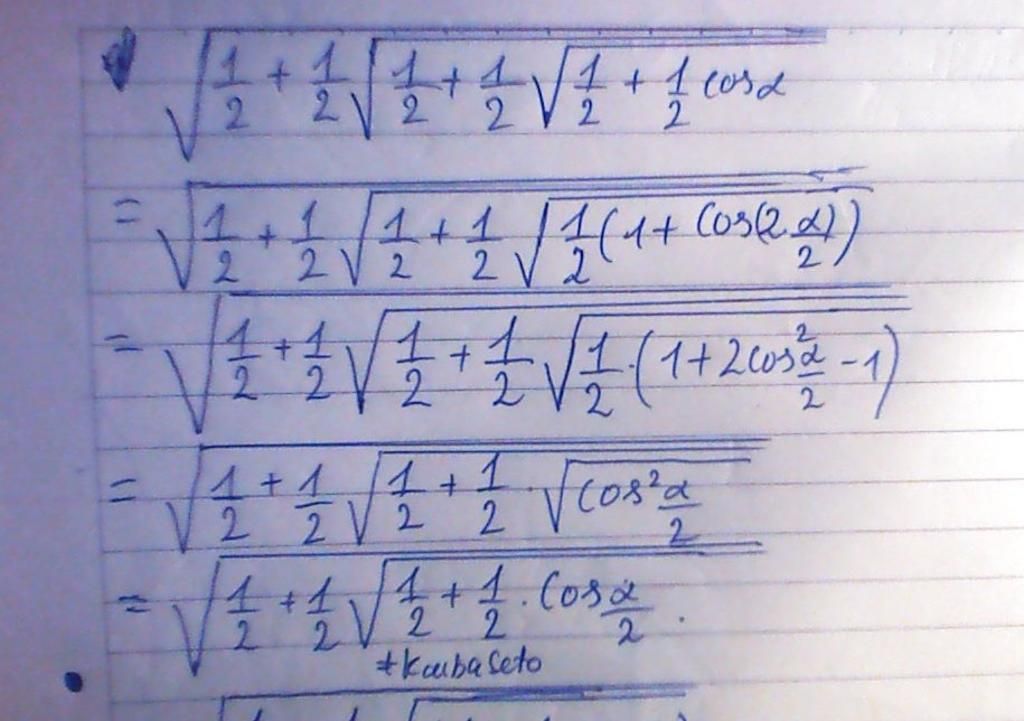 √(1/2 + 1/2 √(1/2 + 1/2 √(1/2 + 1/2 cosα)))
= √(1/2 + 1/2 √(1/2 + 1/2 √(1/2 (1 + cos(2 α/2)))))
= √(1/2 + 1/2 √(1/2 + 1/2 √(1/2 · (1 + 2cos² α/2 - 1))))
= √(1/2 + 1/2 √(1/2 + 1/2 · √(cos² α/2)))
= √(1/2 + 1/2 √(1/2 + 1/2 · cos α/2)).